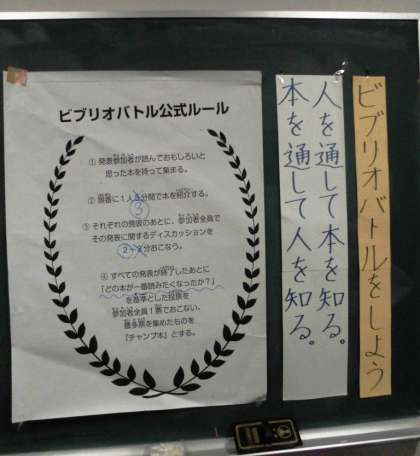 ビブリオバトル公式ルール
① 発表参加者が読んでおもしろいと
思った本を持って集まる。
② 順番に1人5分間で本を紹介する。
3
③ それぞれの発表のあとに、参加者全員で
その発表に関するディスカッションを
2~3分おこなう。
④ すべての発表が終了したあとに
「どの本が一番読みたくなったか?」
を基準とした投票を
参加者全員1票でおこない、
最多票を集めたものを
『チャンプ本』とする。
ビブリオバトルをしよう
人を通して本を知る。
本を通して人を知る。